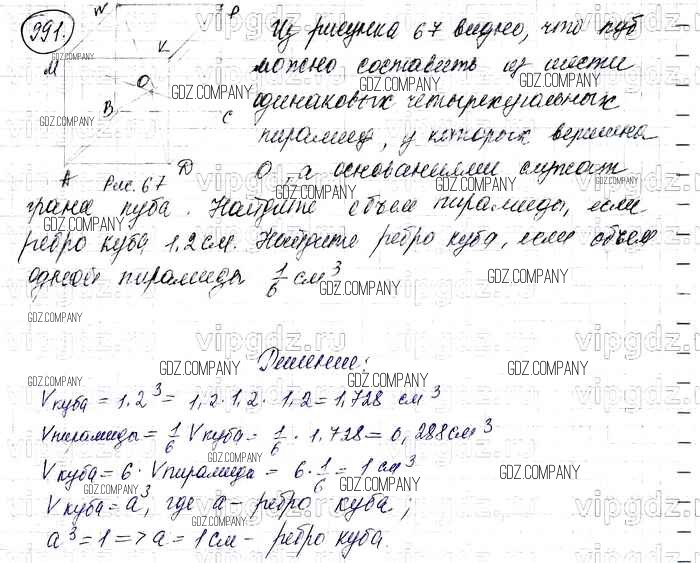 991.
N P
M K
O
B C
A D
Рис. 67
Из рисунка 67 видно, что куб
можно составить из шести
одинаковых четырехугольных
пирамид, у которых вершина
O, а основаниями служат
грани куба. Найдите объем пирамиды, если
ребро куба 1,2 см. Найдите ребро куба, если объем
одной пирамиды 1/6 см³.
Решение:
Vкуба = 1,2³ = 1,2 · 1,2 · 1,2 = 1,728 см³
Vпирамиды = 1/6 Vкуба = 1/6 · 1,728 = 0,288 см³
Vкуба = 6 · Vпирамида = 6 · 1/6 = 1 см³
Vкуба = a³, где a - ребро куба;
a³ = 1 => a = 1 см - ребро куба.
GDZ.COMPANY
vipgdz.ru